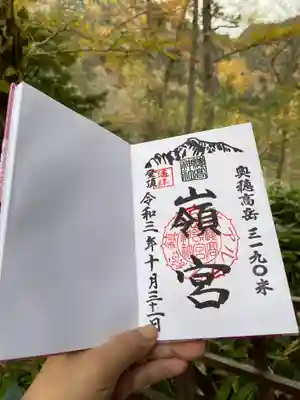 奥穂高岳 三一九〇米
嶺宮
登頂
令和三年十月三十一日